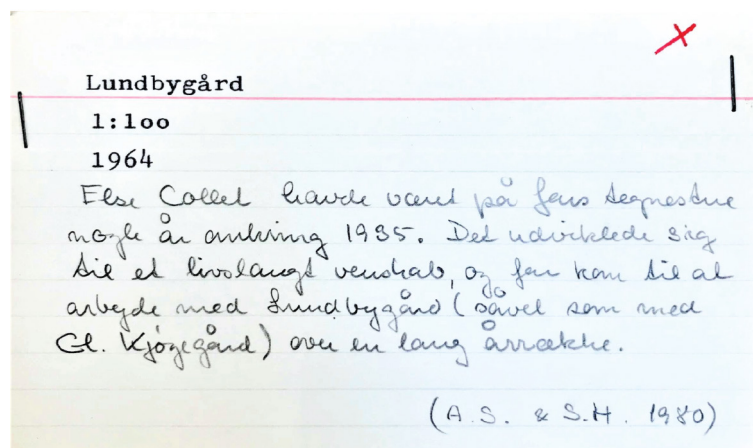 Lundbygård
1:1oo
1964
Else Collet havde været på fars tegnestue
nogle år omkring 1935. Det udviklede sig
til et livslangt venskab, og far kom til at
arbejde med Lundbygård (såvel som med
Gl. Kjøgegård) over en lang årrække.
(A.S. & S.H. 1980)